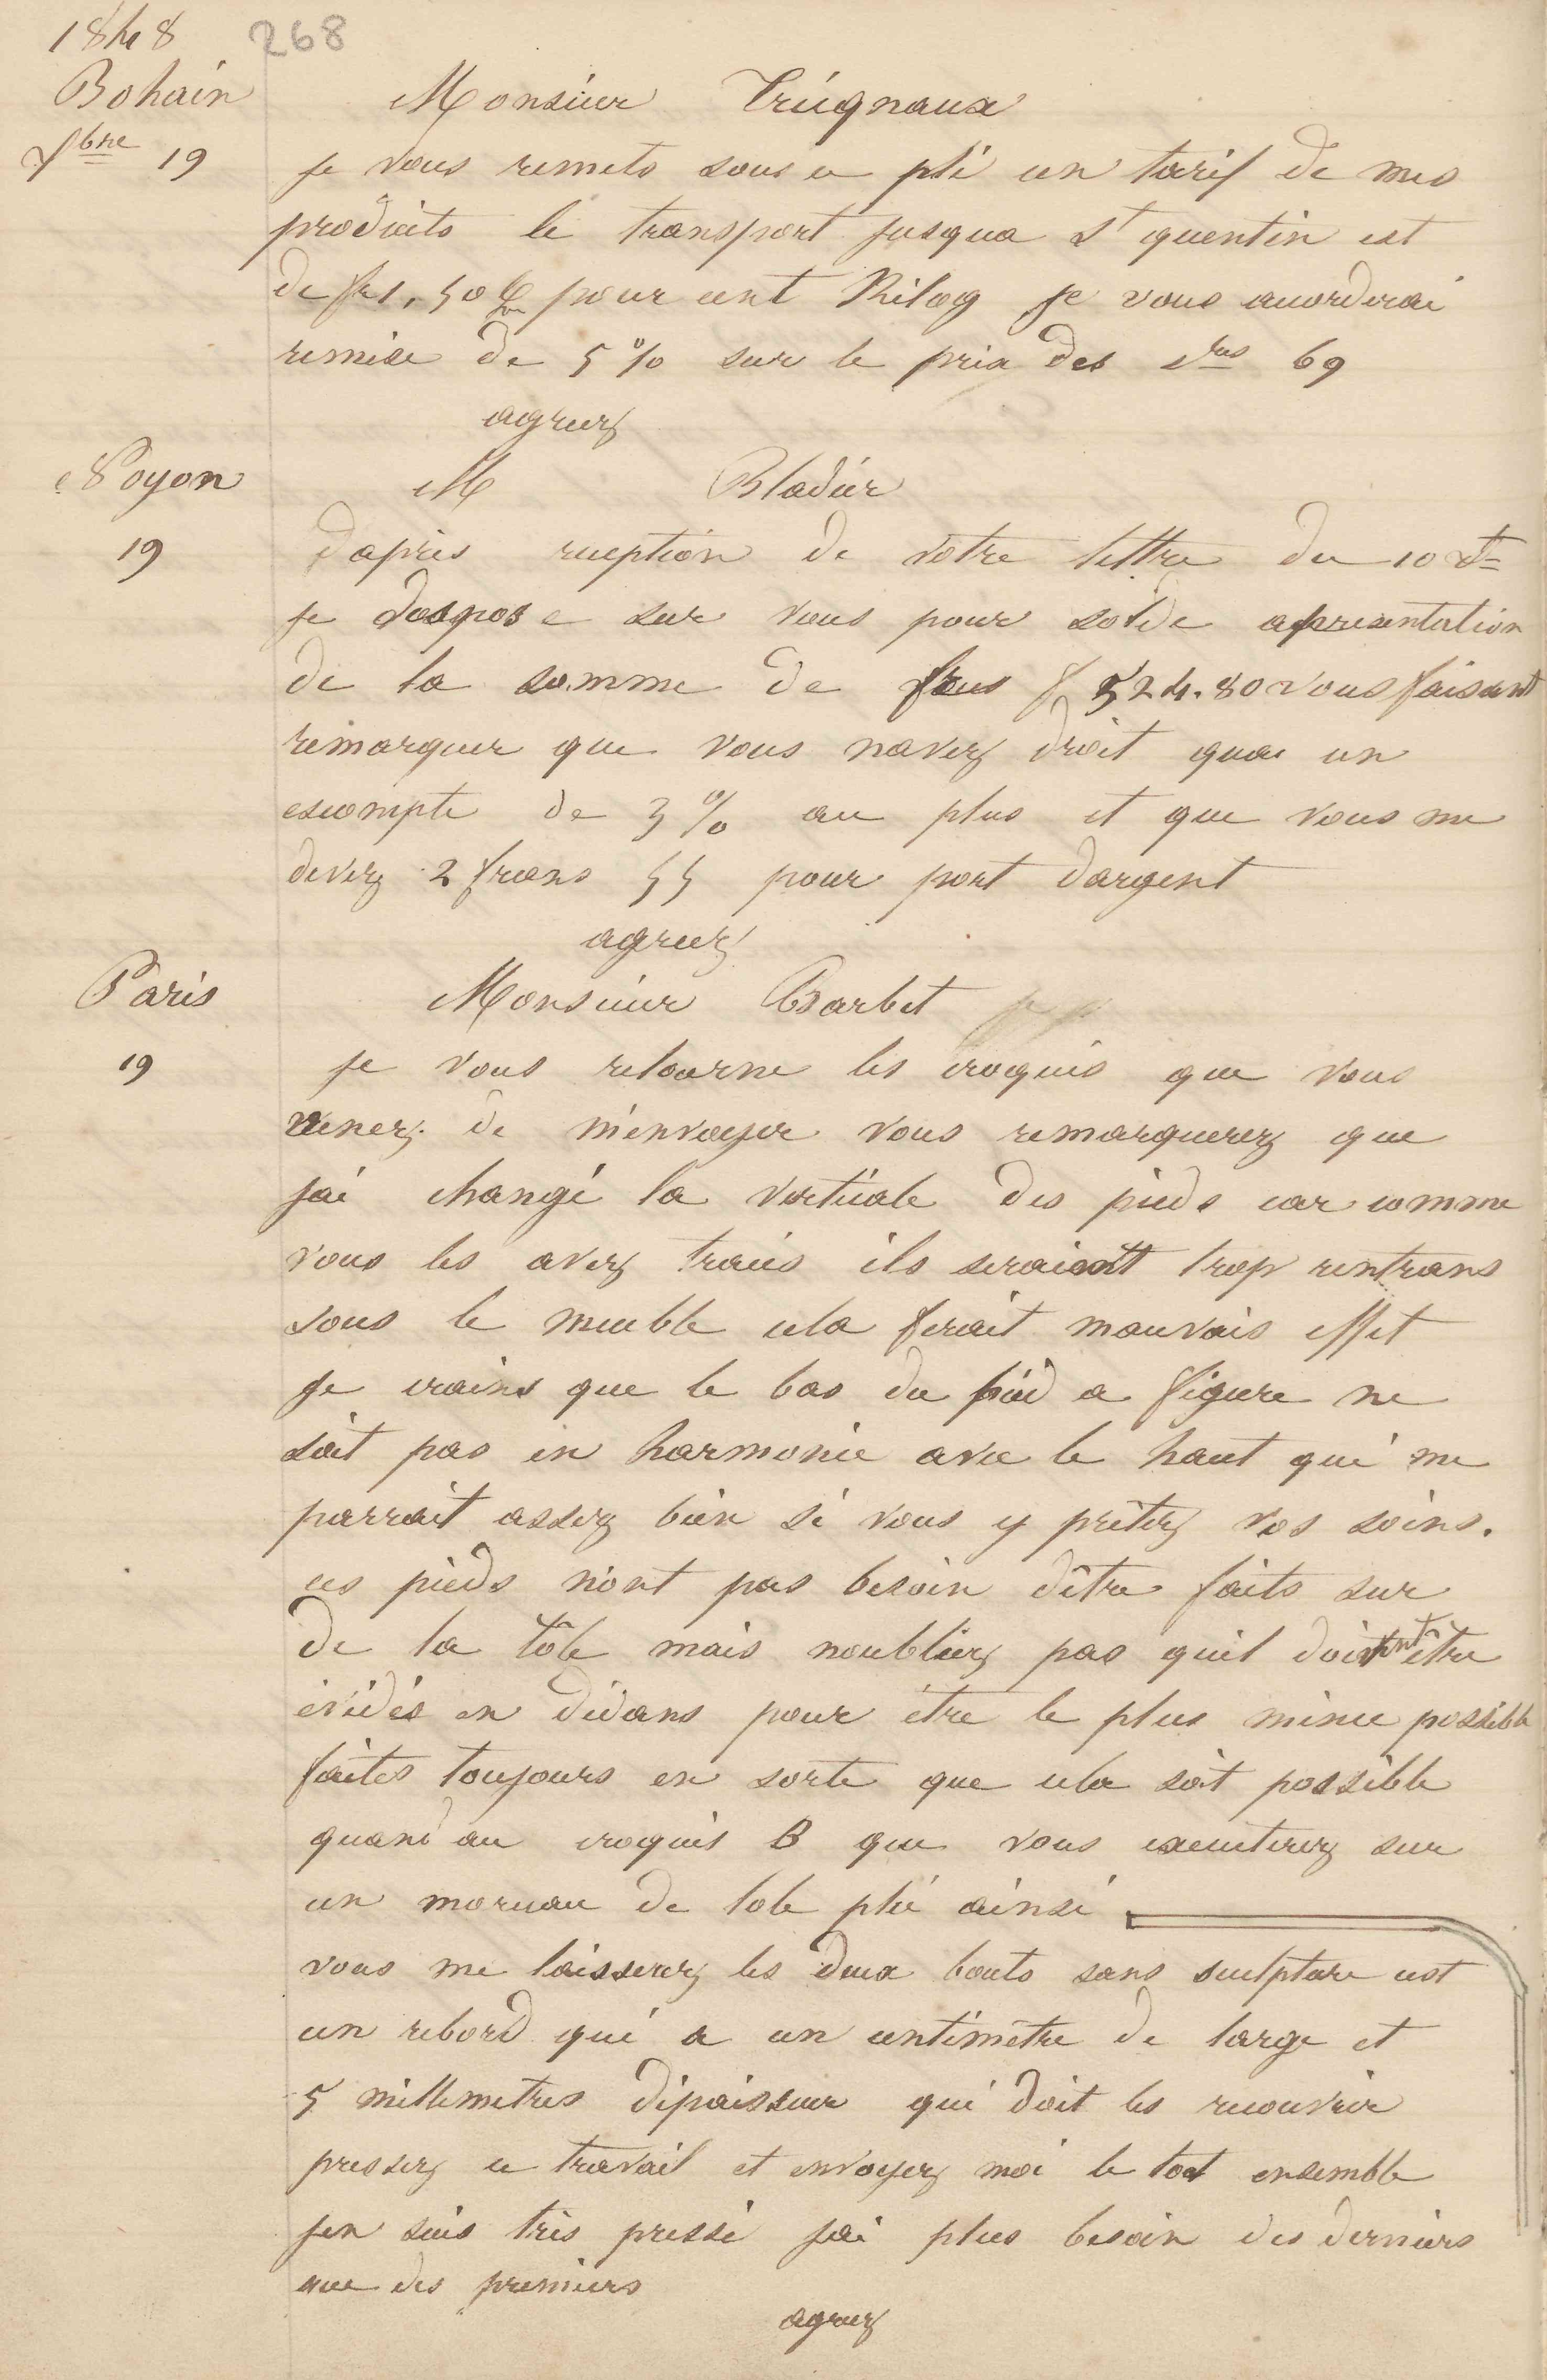 1848 268
Bohain
Monsieur Trúgnaux
Xbre 19
je vous remets sous ce pli un tarif de mes
produits le transport jusqua St quentin est
de fr 1,50 c pour cent Kilog je vous accorderai
remise de 5 % sur le prix des 69
agreez
Noyon
M Bladier
19
dapres reception de votre lettre du 10 Ct
je dispose sur vous pour solde apresentation
de la somme de f 524.80 vous faisant
remarquer que vous navez droit qua un
escompte de 3 % au plus et que vous me
devez 2 francs 55 pour port dargent
agreez
Paris
Monsieur Barbet
19
je vous retourne les croquis que vous
venez de m'envoyer vous remarquerez que
jai changé la verticale des pieds car comme
vous les avez tracés ils seraient trop rentrans
sous le meuble cela ferait mauvais effet
je crains que le bas du pied a figure ne
soit pas en harmonie avec le haut qui me
parrait assez bien si vous y prêtez vos soins.
ces pieds n'ont pas besoin d'être faits sur
de la tôle mais noubliez pas quil doivent être
évidés en dédans pour être le plus mince possible
faites toujours en sorte que cela soit possible
quand au croquis B que vous executerez sur
un morceau de tole plié ainsi
vous me laisserez les deux bouts sans sculpture cest
un rebord qui a un centimètre de large et
5 millemetres dépaisseur qui doit les recouvrir
pressez ce travail et envoyez moi le tout ensemble
jen suis très pressé jai plus besoin des derniers
que des premiers
agreez